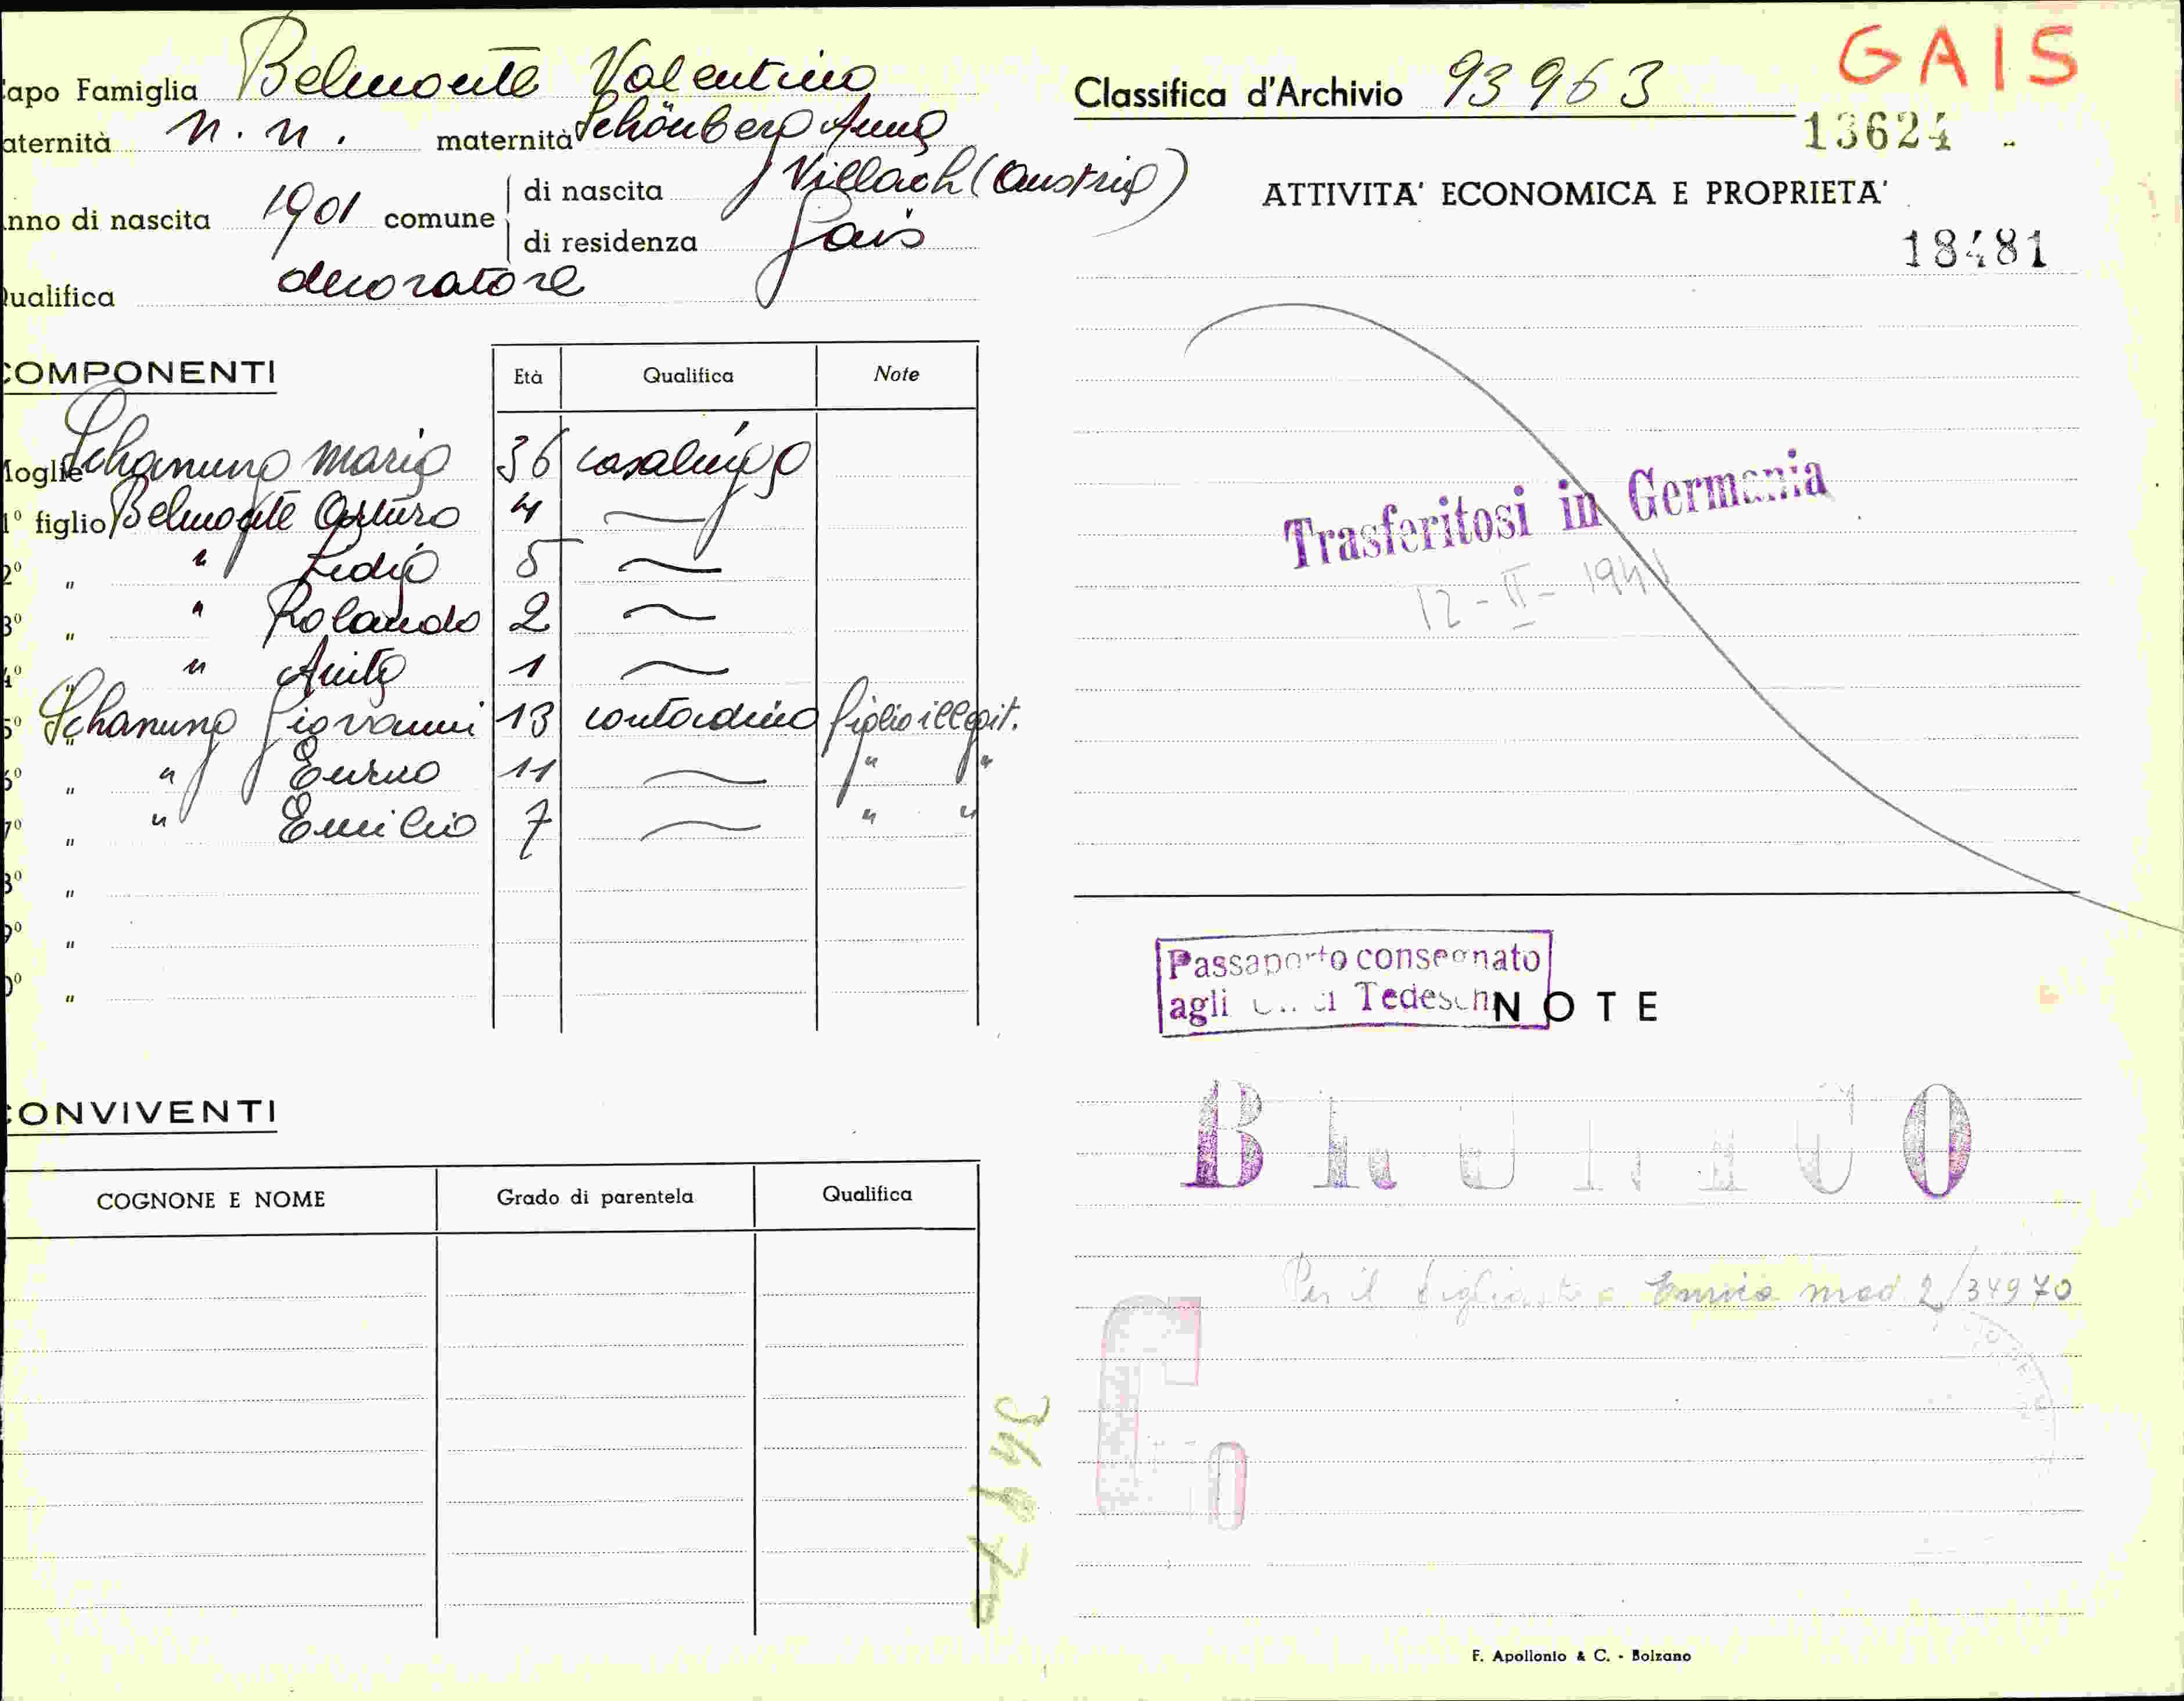 apo Famiglia Belmonte Valentino
aternità n. n. maternità Schönberg Anna
nno di nascita 1901 comune di nascita Villach (Austria)
di residenza Gais
ualifica decoratore
COMPONENTI Età Qualifica Note
oglie Schanung Maria 36 casalinga
1º figlio Belmonte Arturo 4
2º " " Lidia 5
3º " " Rolando 2
4º " " Anita 1
5º " Schanung Giovanni 13 contadino figlio illegit.
6º " " 11 " "
7º " " Emilio 7 " "
8º "
9º "
0º "
CONVIVENTI
COGNONE E NOME Grado di parentela Qualifica
3497
Classifica d'Archivio 93963
GAIS
13624
ATTIVITA' ECONOMICA E PROPRIETA'
18481
Trasferitosi in Germania
12-II-1941
Passaporto consegnato
agli Tedeschi
NOTE
Brunico
Per il figliastro mod 2/34970
F. Apollonio & C. - Bolzano